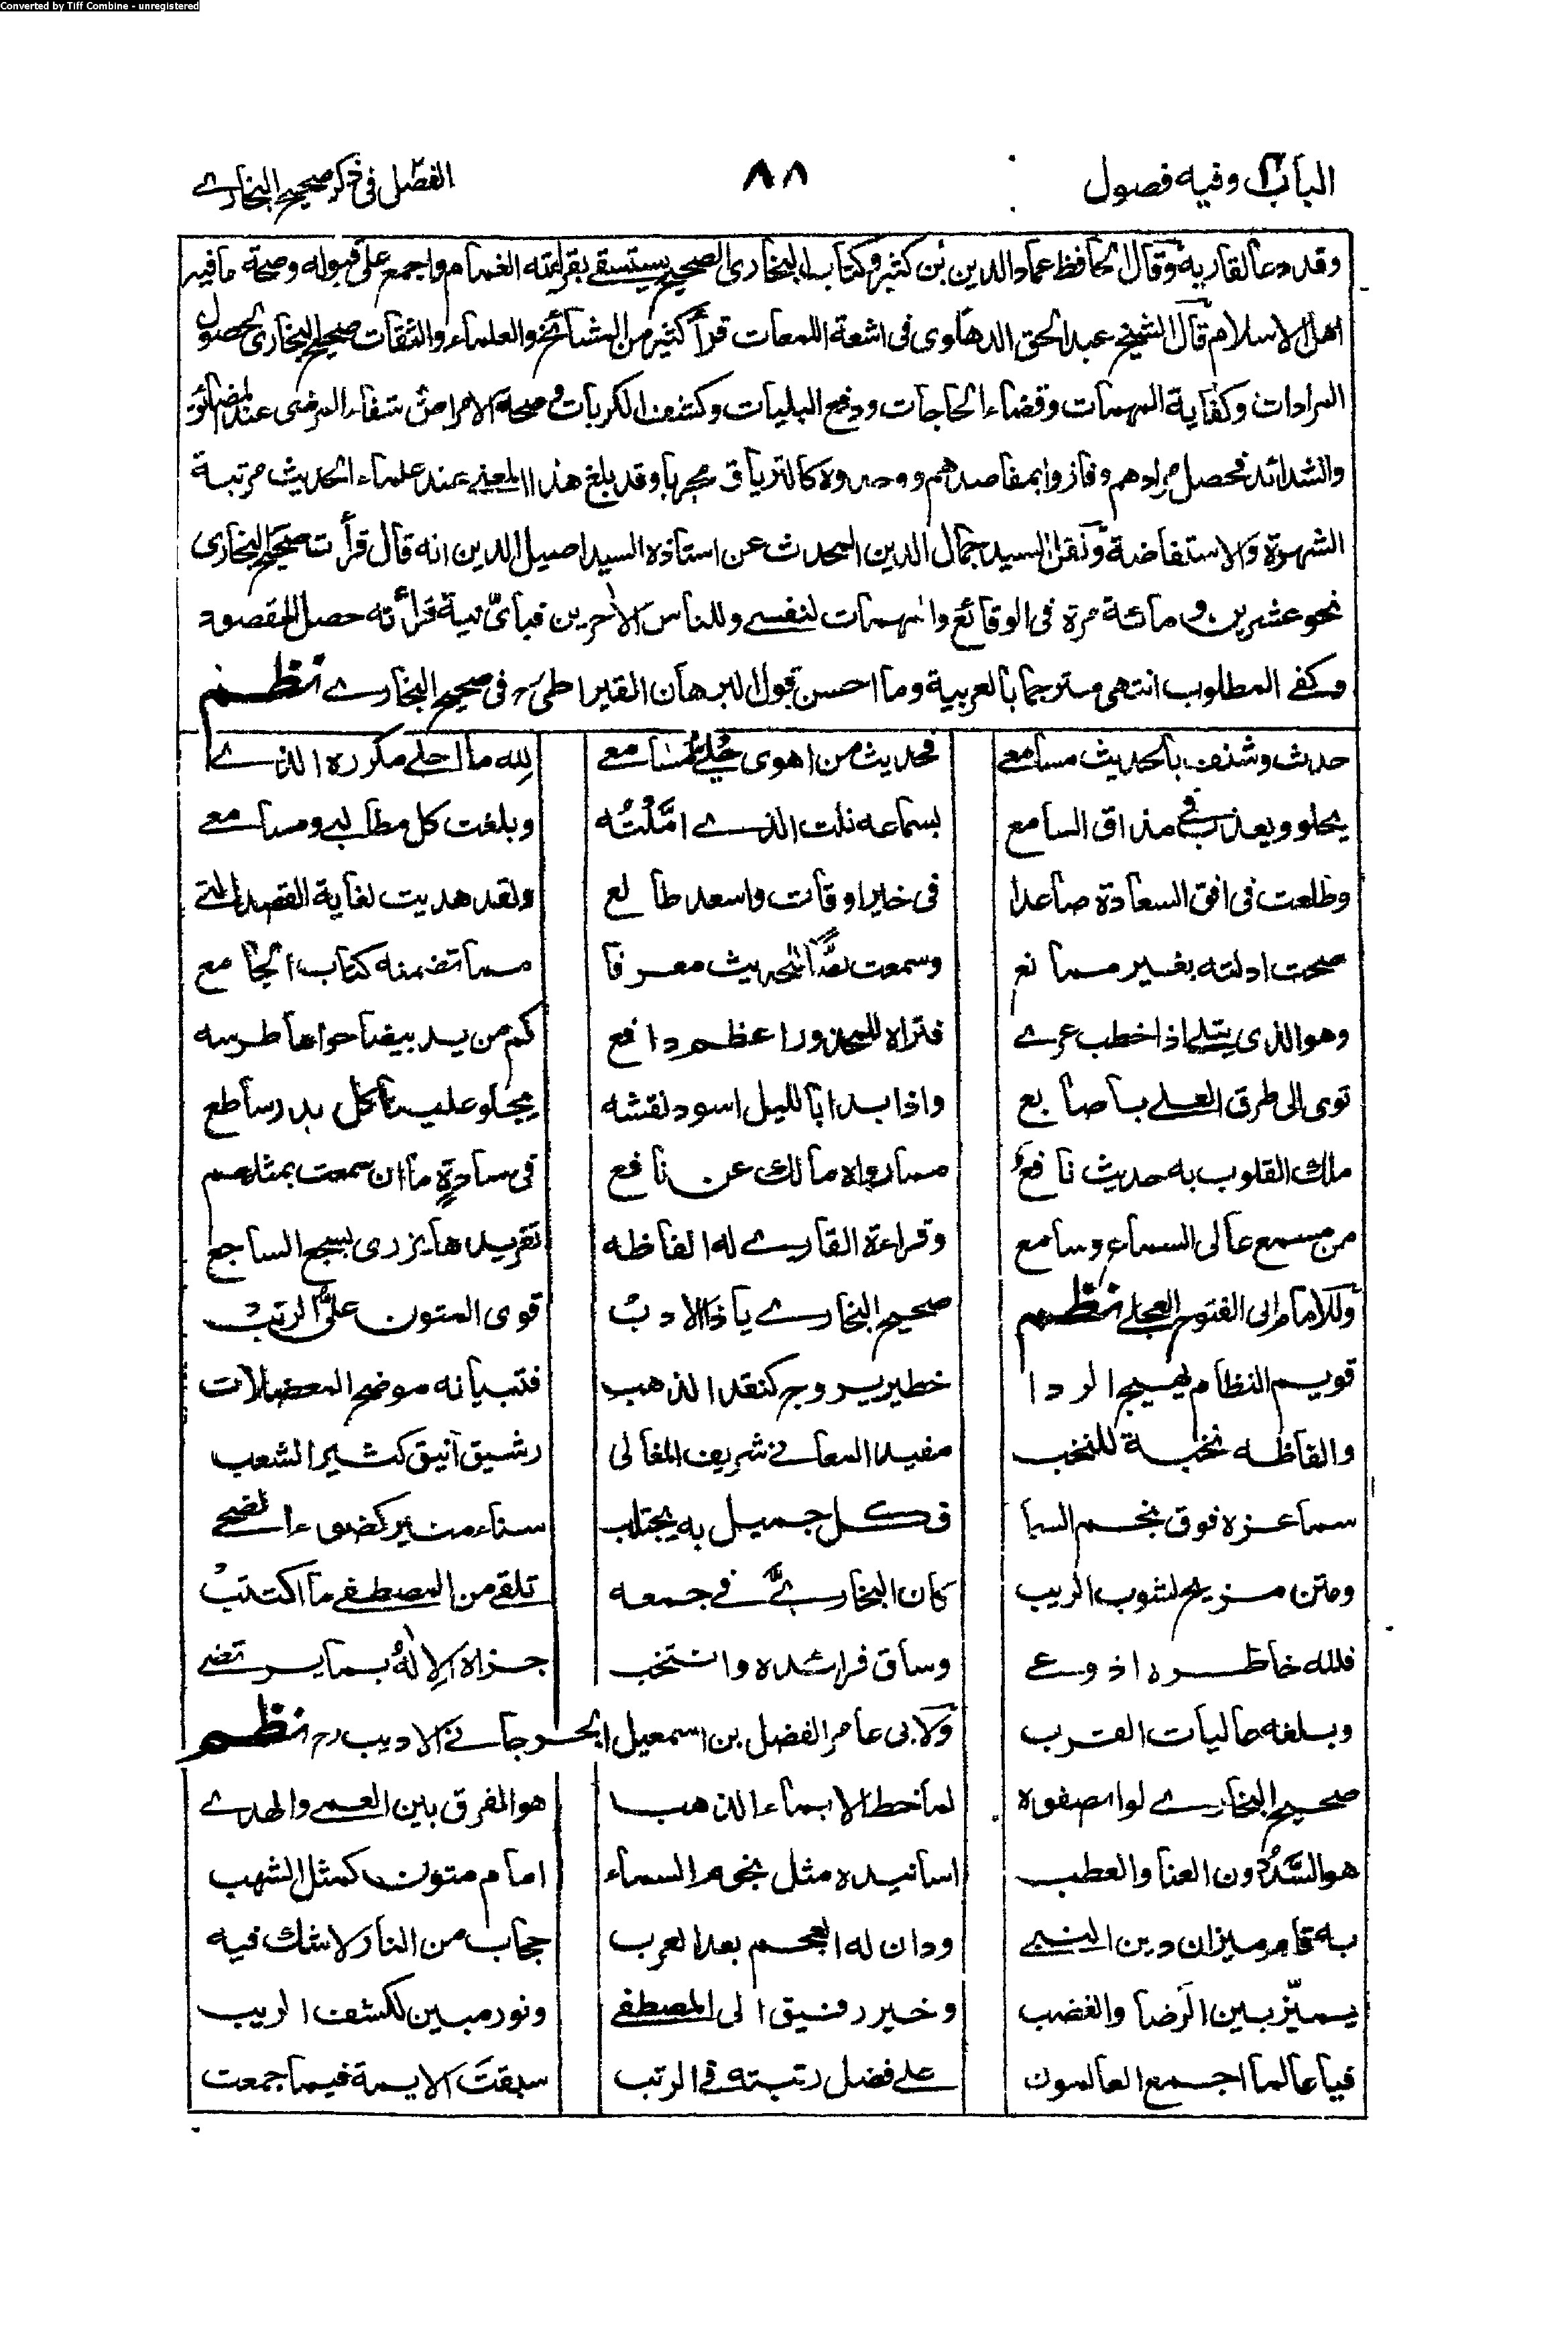 Converted by Tiff Combine - unregistered
الباب وفيه فصول ٨٨ الفصل فى ذكر صحيح البخارى
وقد دعا لقاريه وقال الحافظ عماد الدين بن كثير وكتاب البخارى الصحيح يستسقى بقراءته الغمام واجمع على قبوله وصحة ما فيه
اهل الاسلام قال الشيخ عبد الحق الدهلوى فى اشعة اللمعات قرأ كثير من المشائخ والعلماء والثقات صحيح البخارى لحصول
المرادات وكفاية المهمات وقضاء الحاجات ودفع البليات وكشف الكربات وصحة الامراض شفاء المرضى عند المضائق
والشدائد فحصل مرادهم وفازوا بمقاصدهم ووجدوه كالترياق مجربا وقد بلغ هذا المعنى عند علماء الحديث مرتبة
الشهرة والاستفاضة ونقل السيد جمال الدين المحدث عن استاذه السيد اصيل الدين انه قال قرأت صحيح البخارى
نحو عشرين ومائة مرة فى الوقائع والمهمات لنفسى وللناس الاخرين فبأى نية قرأته حصل المقصود
وكفى المطلوب انتهى مترجما بالعربية وما احسن قول البرهان القيراطى رح فى صحيح البخارى نظم
حدث وشنف بالحديث مسامعى فحديث من اهوى حلى مسامعى لله ما احلى مكرره الذى
يحلو ويعذب فى مذاق السامع بسماعه نلت الذى املته وبلغت كل مطالبى ومسامعى
وطلعت فى افق السعادة صاعدا فى خير اوقات واسعد طالع ولقد هديت لغاية القصد التى
صحت ادلته بغير ممانع وسمعت نصا للحديث معرفا مما تضمنه كتاب الجامع
وهو الذى يتلى اذا خطب عرى فتراه للمحذور اعظم دافع كم من يد بيضا حواها طرسه
تومى الى طرق العلى باصابع واذا بدا بالليل اسود نقشه يجلو علينا كل بدر ساطع
ملك القلوب به حديث نافع مما رواه مالك عن نافع فى سادة ما ان سمعت بمثلهم
من مسمع عالى السماء وسامع وقراءة القارى له الفاظه تغريدها يزرى بسجع الساجع
وللامام ابى الفتوح العجلى نظم صحيح البخارى يا ذا الادب قوى المتون على الرتب
قويم النظام بهيج الردا خطير يروج كنقد الذهب فتبيانه موضح المعضلات
والفاظه نخبة للنخب مفيد المعانى شريف المعالى رشيق انيق كثير الشعب
سما عزه فوق نجم السما فكل جميل به يجتلب سناء منير كضوء الضحى
ومتن مزيح لشوب الريب كان البخارى فى جمعه تلقى من المصطفى ما اكتتب
فلله خاطره اذ وعى وساق فرائده وانتخب جزاه الاله بما يرتضى
وبلغه عاليات القرب ولابى عامر الفضل بن اسمعيل الجرجانى الاديب رح نظم
صحيح البخارى لو انصفوه لما خط الا بماء الذهب هو المفرق بين العمى والهدى
هو السد دون العنا والعطب اسانيده مثل نجوم السماء امام متون كمثل الشهب
به قام ميزان دين النبى ودان له العجم بعد العرب حجاب من النار لا شك فيه
يميز بين الرضا والغضب وخير رفيق الى المصطفى ونور مبين لكشف الريب
فيا عالما اجمع العالمون على فضل رتبته فى الرتب سبقت الايمة فيما جمعت